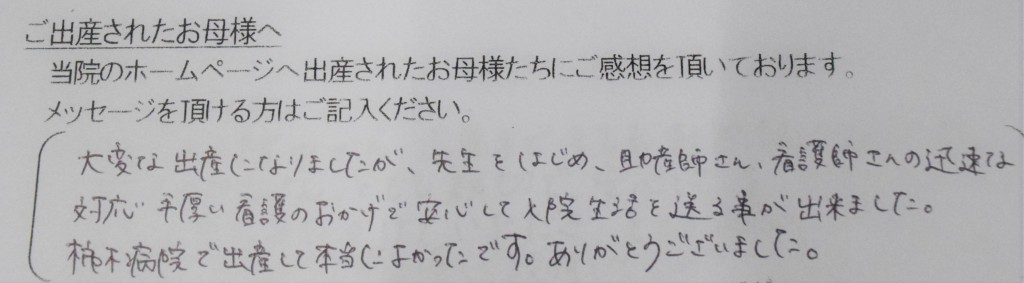 ご出産されたお母様へ
当院のホームページへ出産されたお母様たちにご感想を頂いております。
メッセージを頂ける方はご記入ください。
大変な出産になりましたが、先生をはじめ、助産師さん、看護師さんの迅速な
対応、手厚い看護のおかげで安心して入院生活を送る事が出来ました。
柿木病院で出産して本当によかったです。ありがとうございました。